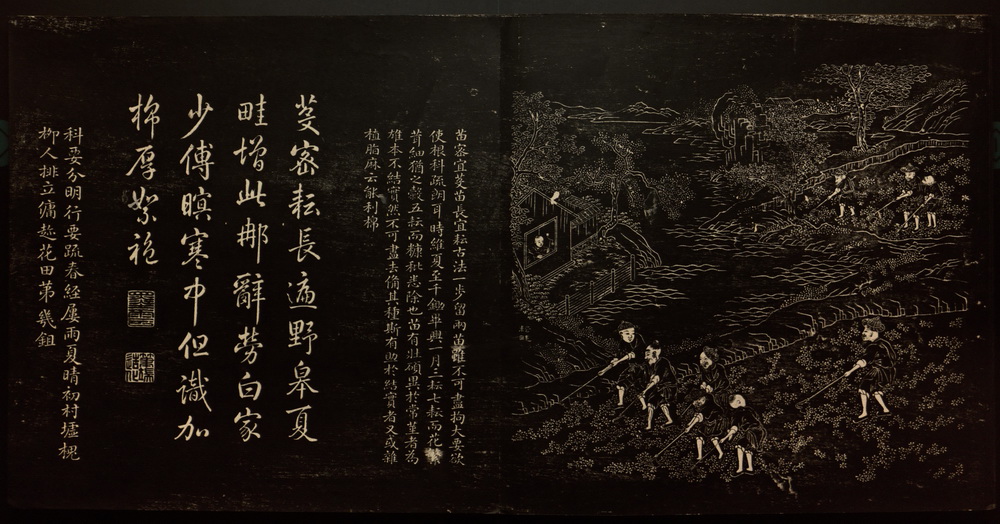 苗密宜芟苗長宜耘古法一步留兩苗雖不可盡拘大要欲
使根科疏朗耳時維夏至千鋤畢興一月三耘七耘而花繁
茸細猶之穀五耘而糠粃悉除也苗有壯碩異於常莖者為
雄本不結實然不可盡去備其種斯有助於結實者又或雜
植脂麻云能利棉
芟密耘長遍野皋夏
畦增此那辭勞白家
少傅暝寒中但識加
棉厚絮袍
科要分明行要疏春經屢雨夏晴初村墟槐
柳人排立傭趁花田第幾鉏